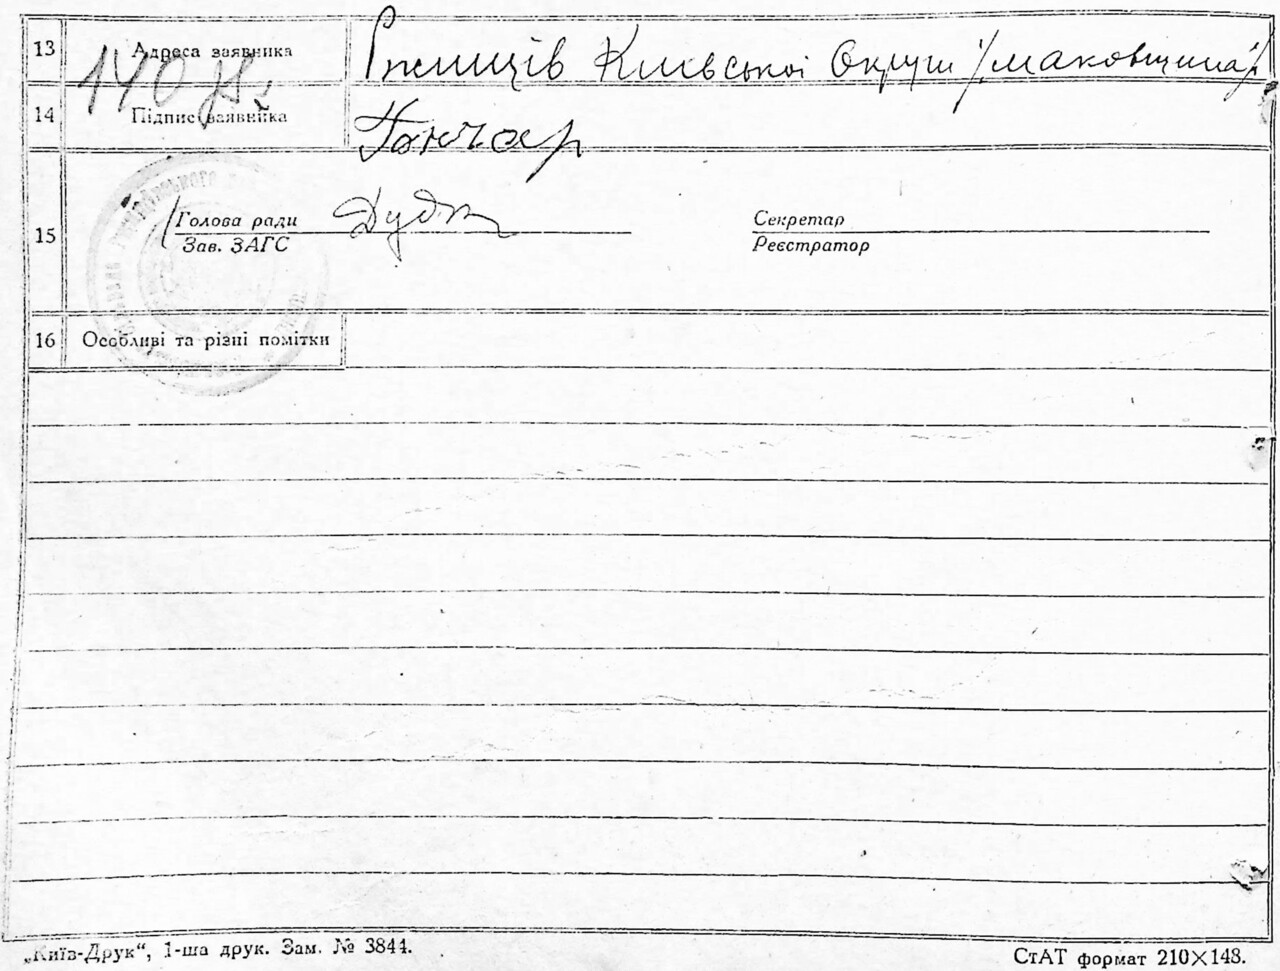 13 Адреса заявника Ржищів Київської Округи /маковщина/
140
14 Підпис заявника Гончар
15 Голова ради Секретар
Зав. ЗАГС Реєстратор
16 Особливі та різні помітки
„Київ-Друк“, 1-ша друк. Зам. № 3844. СтАТ формат 210×148.